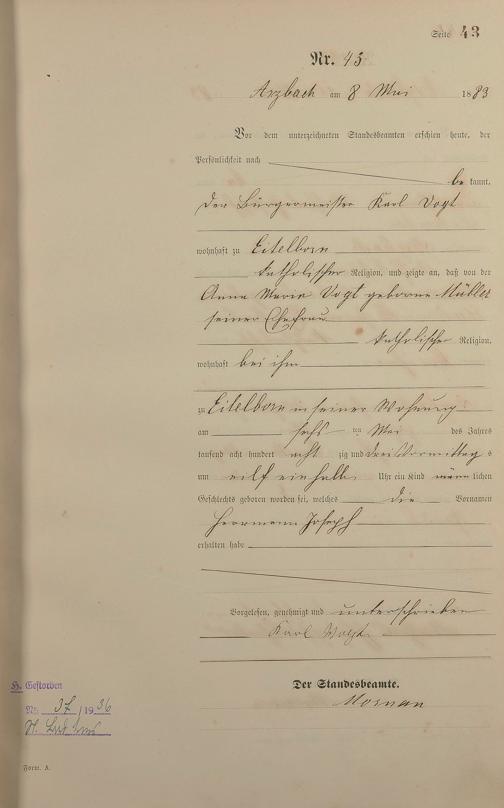 Seite 43
Nr. 43
Arzbach am 8 Mai 1883
Vor dem unterzeichneten Standesbeamten erschien heute, der
Persönlichkeit nach
bekannt,
der Bürgermeister Karl Vogt
wohnhaft zu Eitelborn
katholischer Religion, und zeigte an, daß von der
Anna Maria Vogt geborne Müller
seiner Ehefrau
katholischer Religion,
wohnhaft bei ihm
zu Eitelborn in seiner Wohnung
am sechs ten Mai des Jahres
tausend acht hundert acht zig und drei Vormittag s
um eilf einhalb Uhr ein Kind männlichen
Geschlechts geboren worden sei, welches die Vornamen
Herrmann Joseph
erhalten habe
Vorgelesen, genehmigt und unterschrieben
Karl Vogt
Der Standesbeamte.
H. Gestorben
Nr. 37/1936
Form. A.